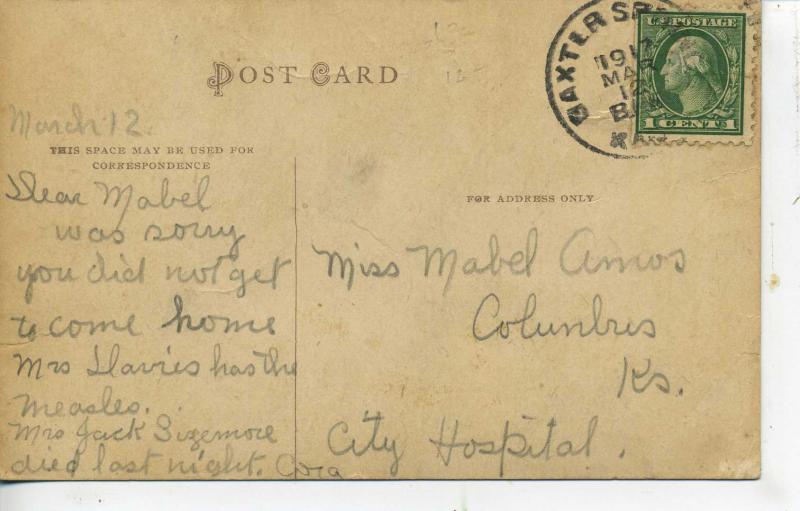 POST CARD
12
12
BAXTER SPR
1917
MAR
12
KAN
U.S. POSTAGE
1 CENT 1
March 12.
THIS SPACE MAY BE USED FOR
CORRESPONDENCE
Dear Mabel
was sorry
you did not get
to come home
Mrs Davies has the
measles.
Mrs Jack Sizemore
died last night. Cora
FOR ADDRESS ONLY
Miss Mabel Amos
Columbus
Ks.
City Hospital.